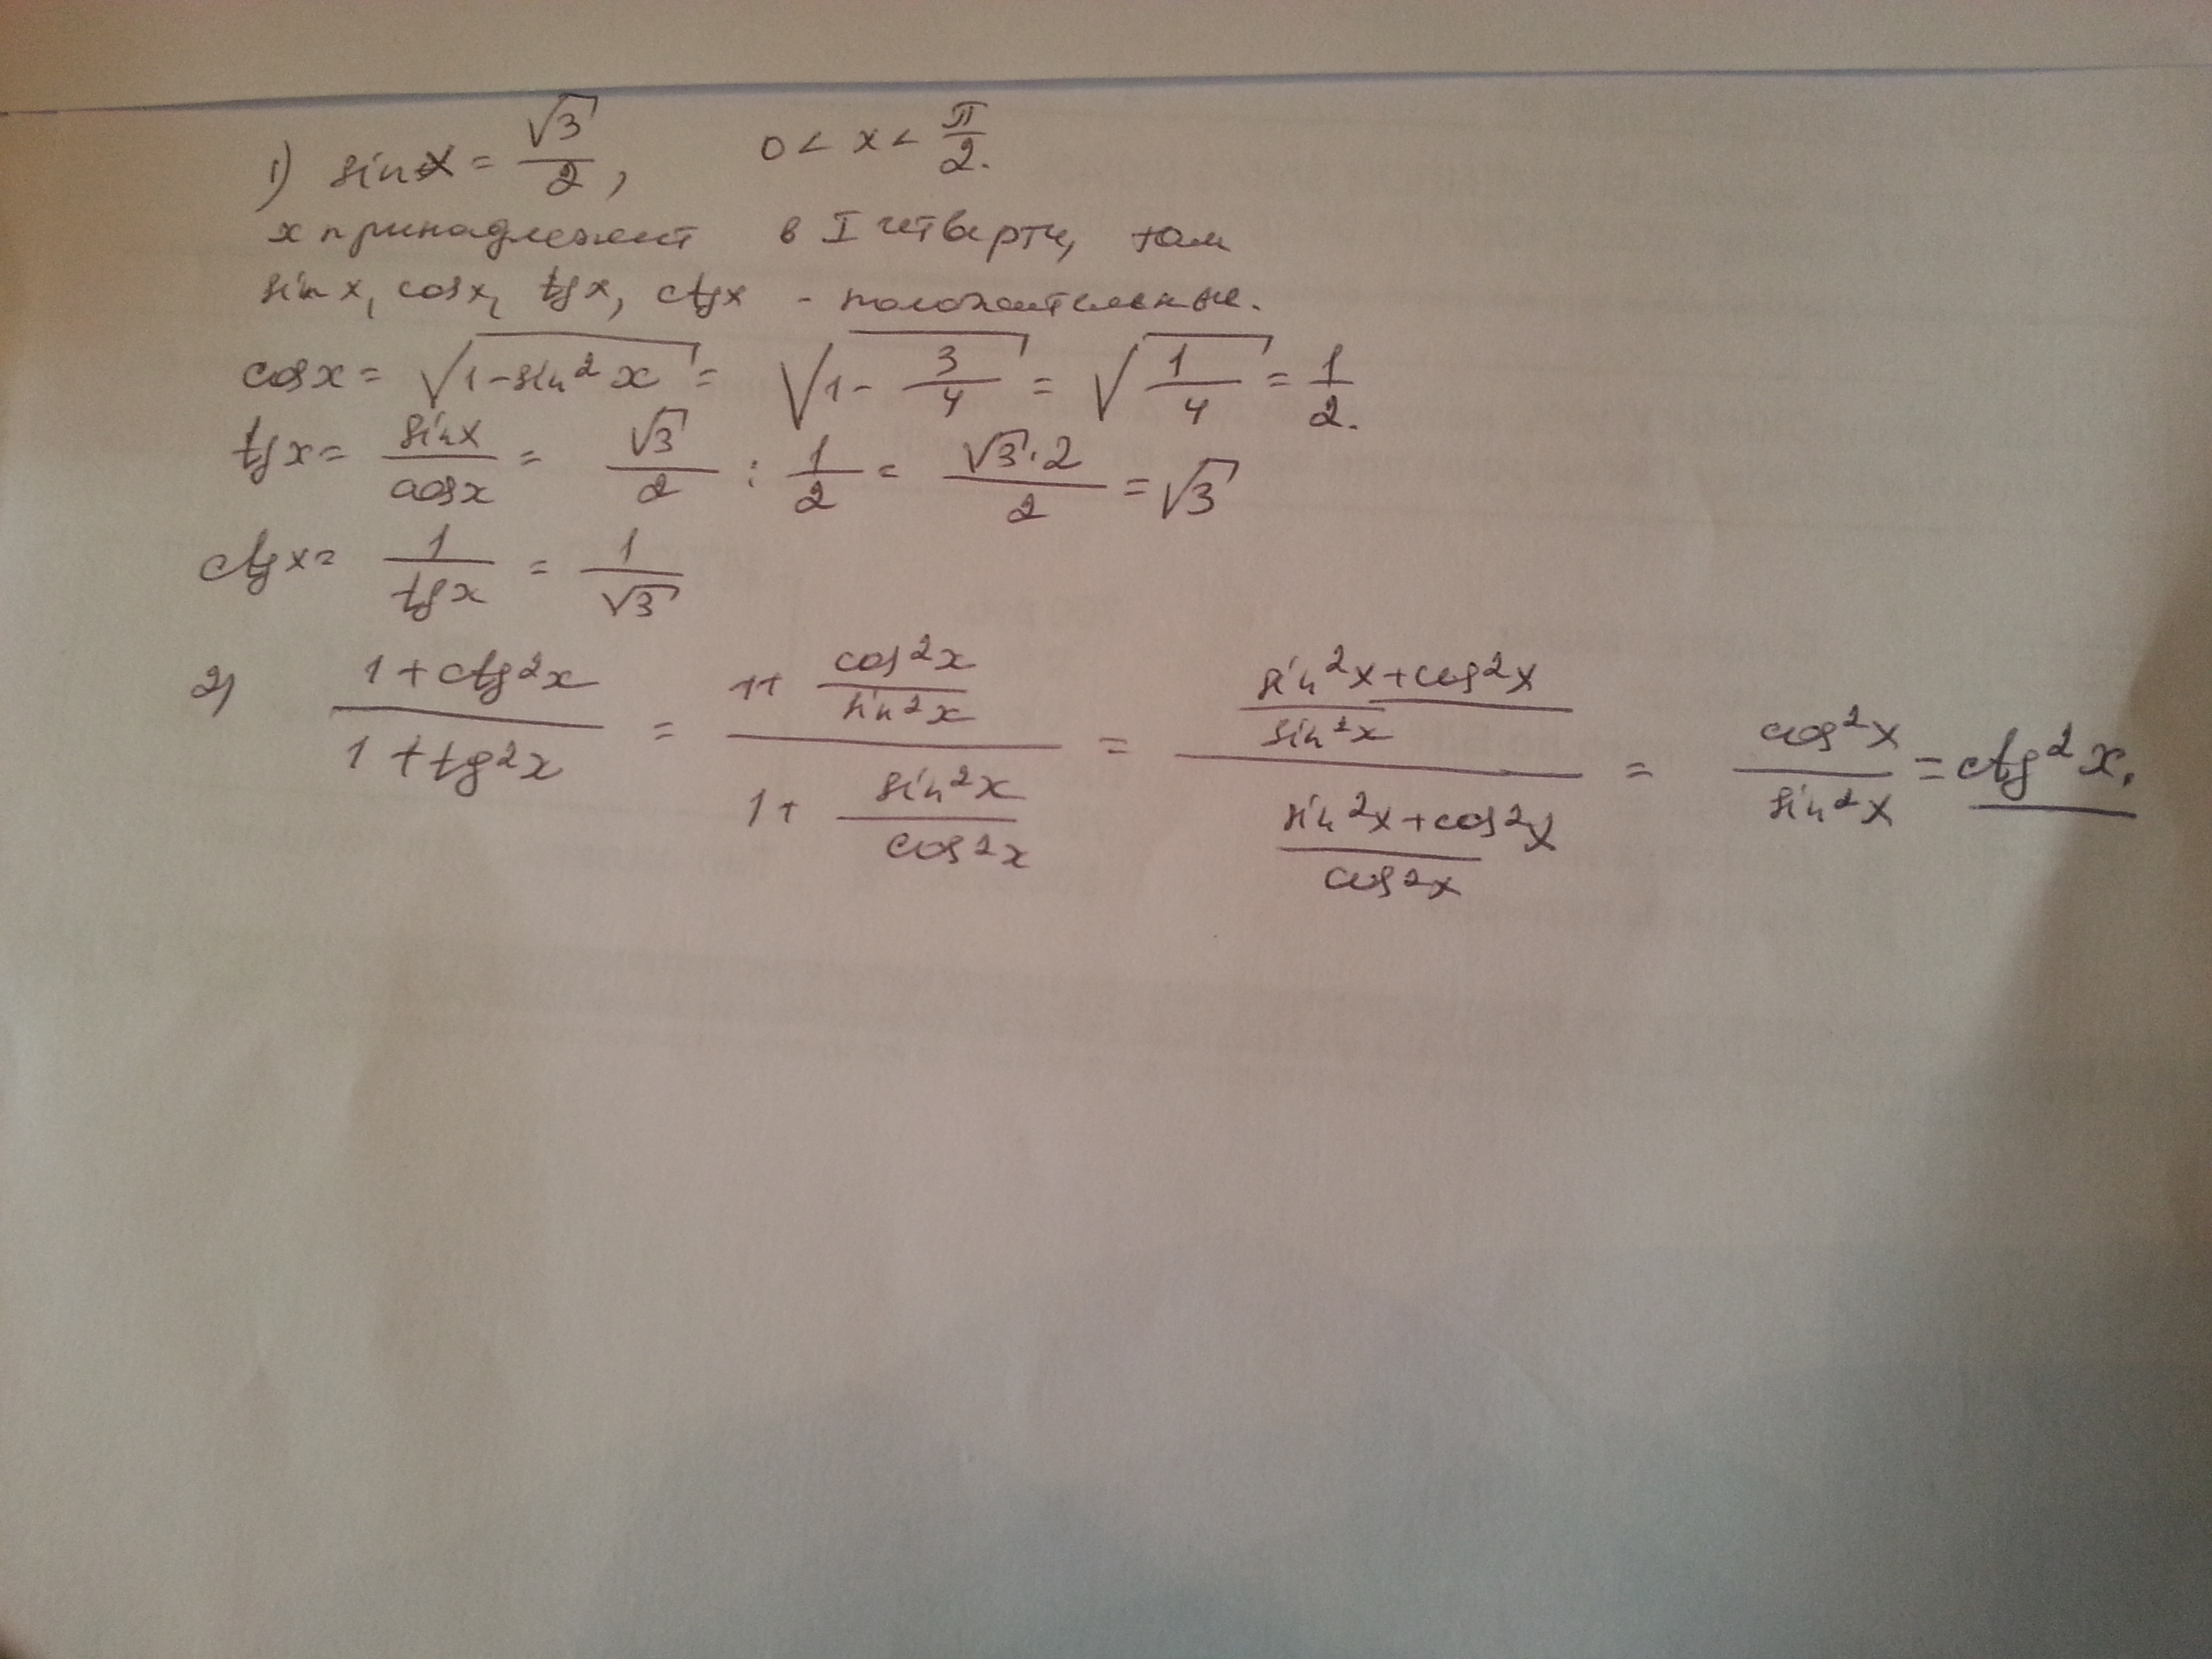 1) sin x = √3/2, 0 < x < π/2.
x принадлежит в I четверти, там
sin x, cos x, tg x, ctg x - положительные.
cos x = √(1 - sin²x) = √(1 - 3/4) = √(1/4) = 1/2.
tg x = sin x/cos x = √3/2 : 1/2 = √3·2/2 = √3
ctg x = 1/tg x = 1/√3
2) (1 + ctg²x)/(1 + tg²x) = (1 + cos²x/sin²x)/(1 + sin²x/cos²x) = ((sin²x + cos²x)/sin²x)/((sin²x + cos²x)/cos²x) = cos²x/sin²x = ctg²x.